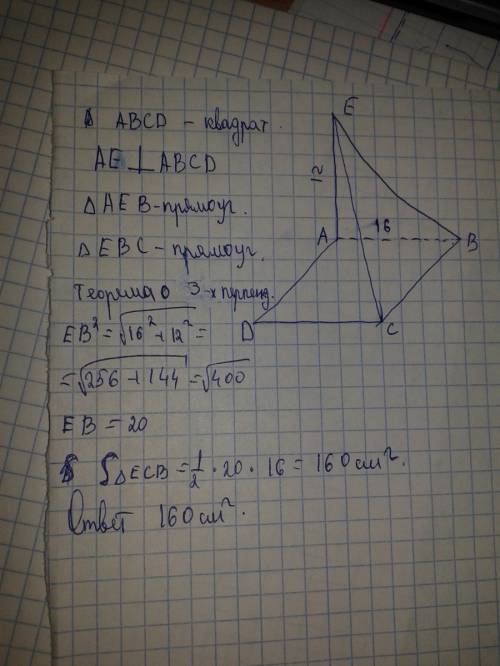 ABCD – квадрат.
AE ⊥ ABCD
△ AEB – прямоуг.
△ EBC – прямоуг.
Теорима о 3-х перпенд.
EB² = √16² + 12² =
= √256 + 144 = √400
EB = 20
S△ECB = 1/2 · 20 · 16 = 160 см².
Ответ 160 см².
E
12
A
16
B
D
C